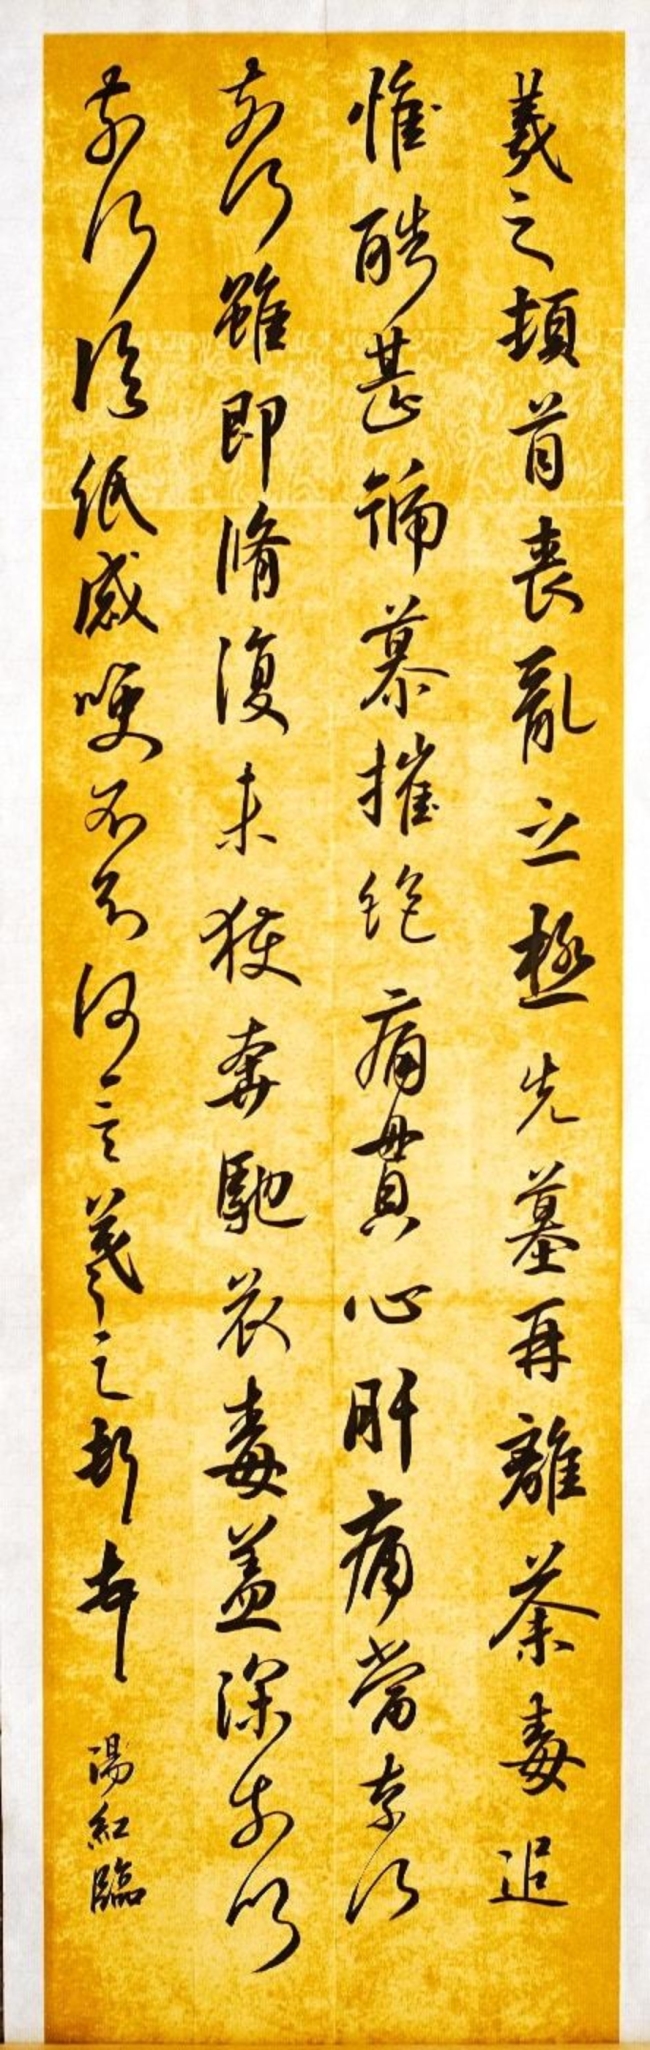 羲之頓首喪亂之極先墓再離荼毒追
惟酷甚號慕摧絕痛貫心肝痛當奈何
奈何雖即脩復未獲奔馳哀毒益深奈何
奈何臨紙感哽不知何言羲之頓首
湯紅臨